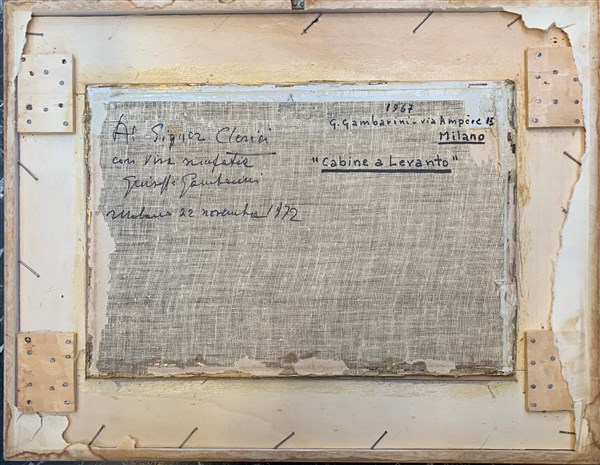 Al Signor Clerici
con viva simpatia
Giuseppe Gambarini
Milano 22 novembre 1972
1967
G. Gambarini - via Ampère 15
Milano
"Cabine a Levanto"